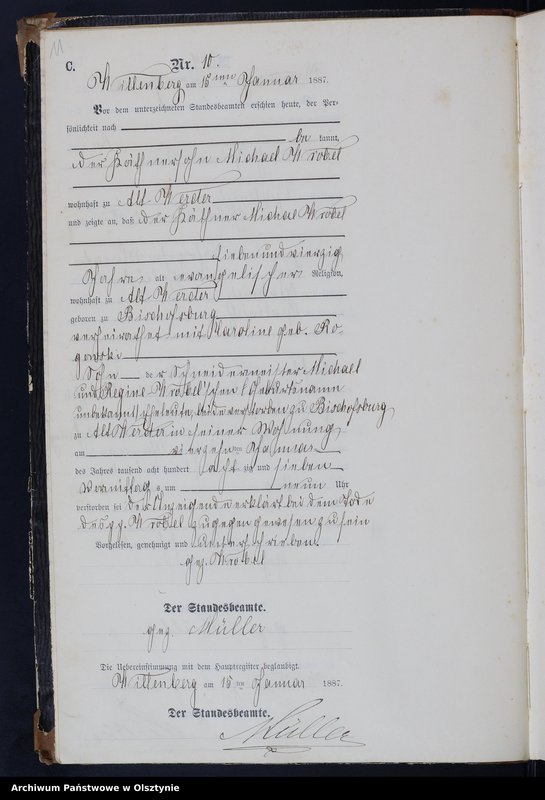 11
C.
Nr. 10.
Wittenberg am 15ten Januar 1887.
Vor dem unterzeichneten Standesbeamten erschien heute, der Per-
sönlichkeit nach
be kannt,
der Käthnersohn Michael Wrobel
wohnhaft zu Alt Werder
und zeigte an, daß der Käthner Michael Wrobel
sieben und vierzig
Jahre alt evangelischer Religion,
wohnhaft zu Alt Werder
geboren zu Bischofsburg
verheirathet mit Karoline geb. Ro-
gowski
Sohn der Schneidermeister Michael
und Regine Wrobel'schen (Geburtsname
unbekannt) Eheleute, beide verstorben zu Bischofsburg
zu Alt Werder in seiner Wohnung
am vierzehnten Januar
des Jahres tausend acht hundert acht zig und sieben
Vormittags um neun Uhr
verstorben sei der Anzeigende erklärt bei dem Tode
des p.p. Wrobel zugegen gewesen zu sein
Vorgelesen, genehmigt und unterschrieben.
gez. Wrobel
Der Standesbeamte.
gez. Müller
Die Uebereinstimmung mit dem Hauptregister beglaubigt.
Wittenberg am 15ten Januar 1887.
Der Standesbeamte.
Müller
Archiwum Państwowe w Olsztynie